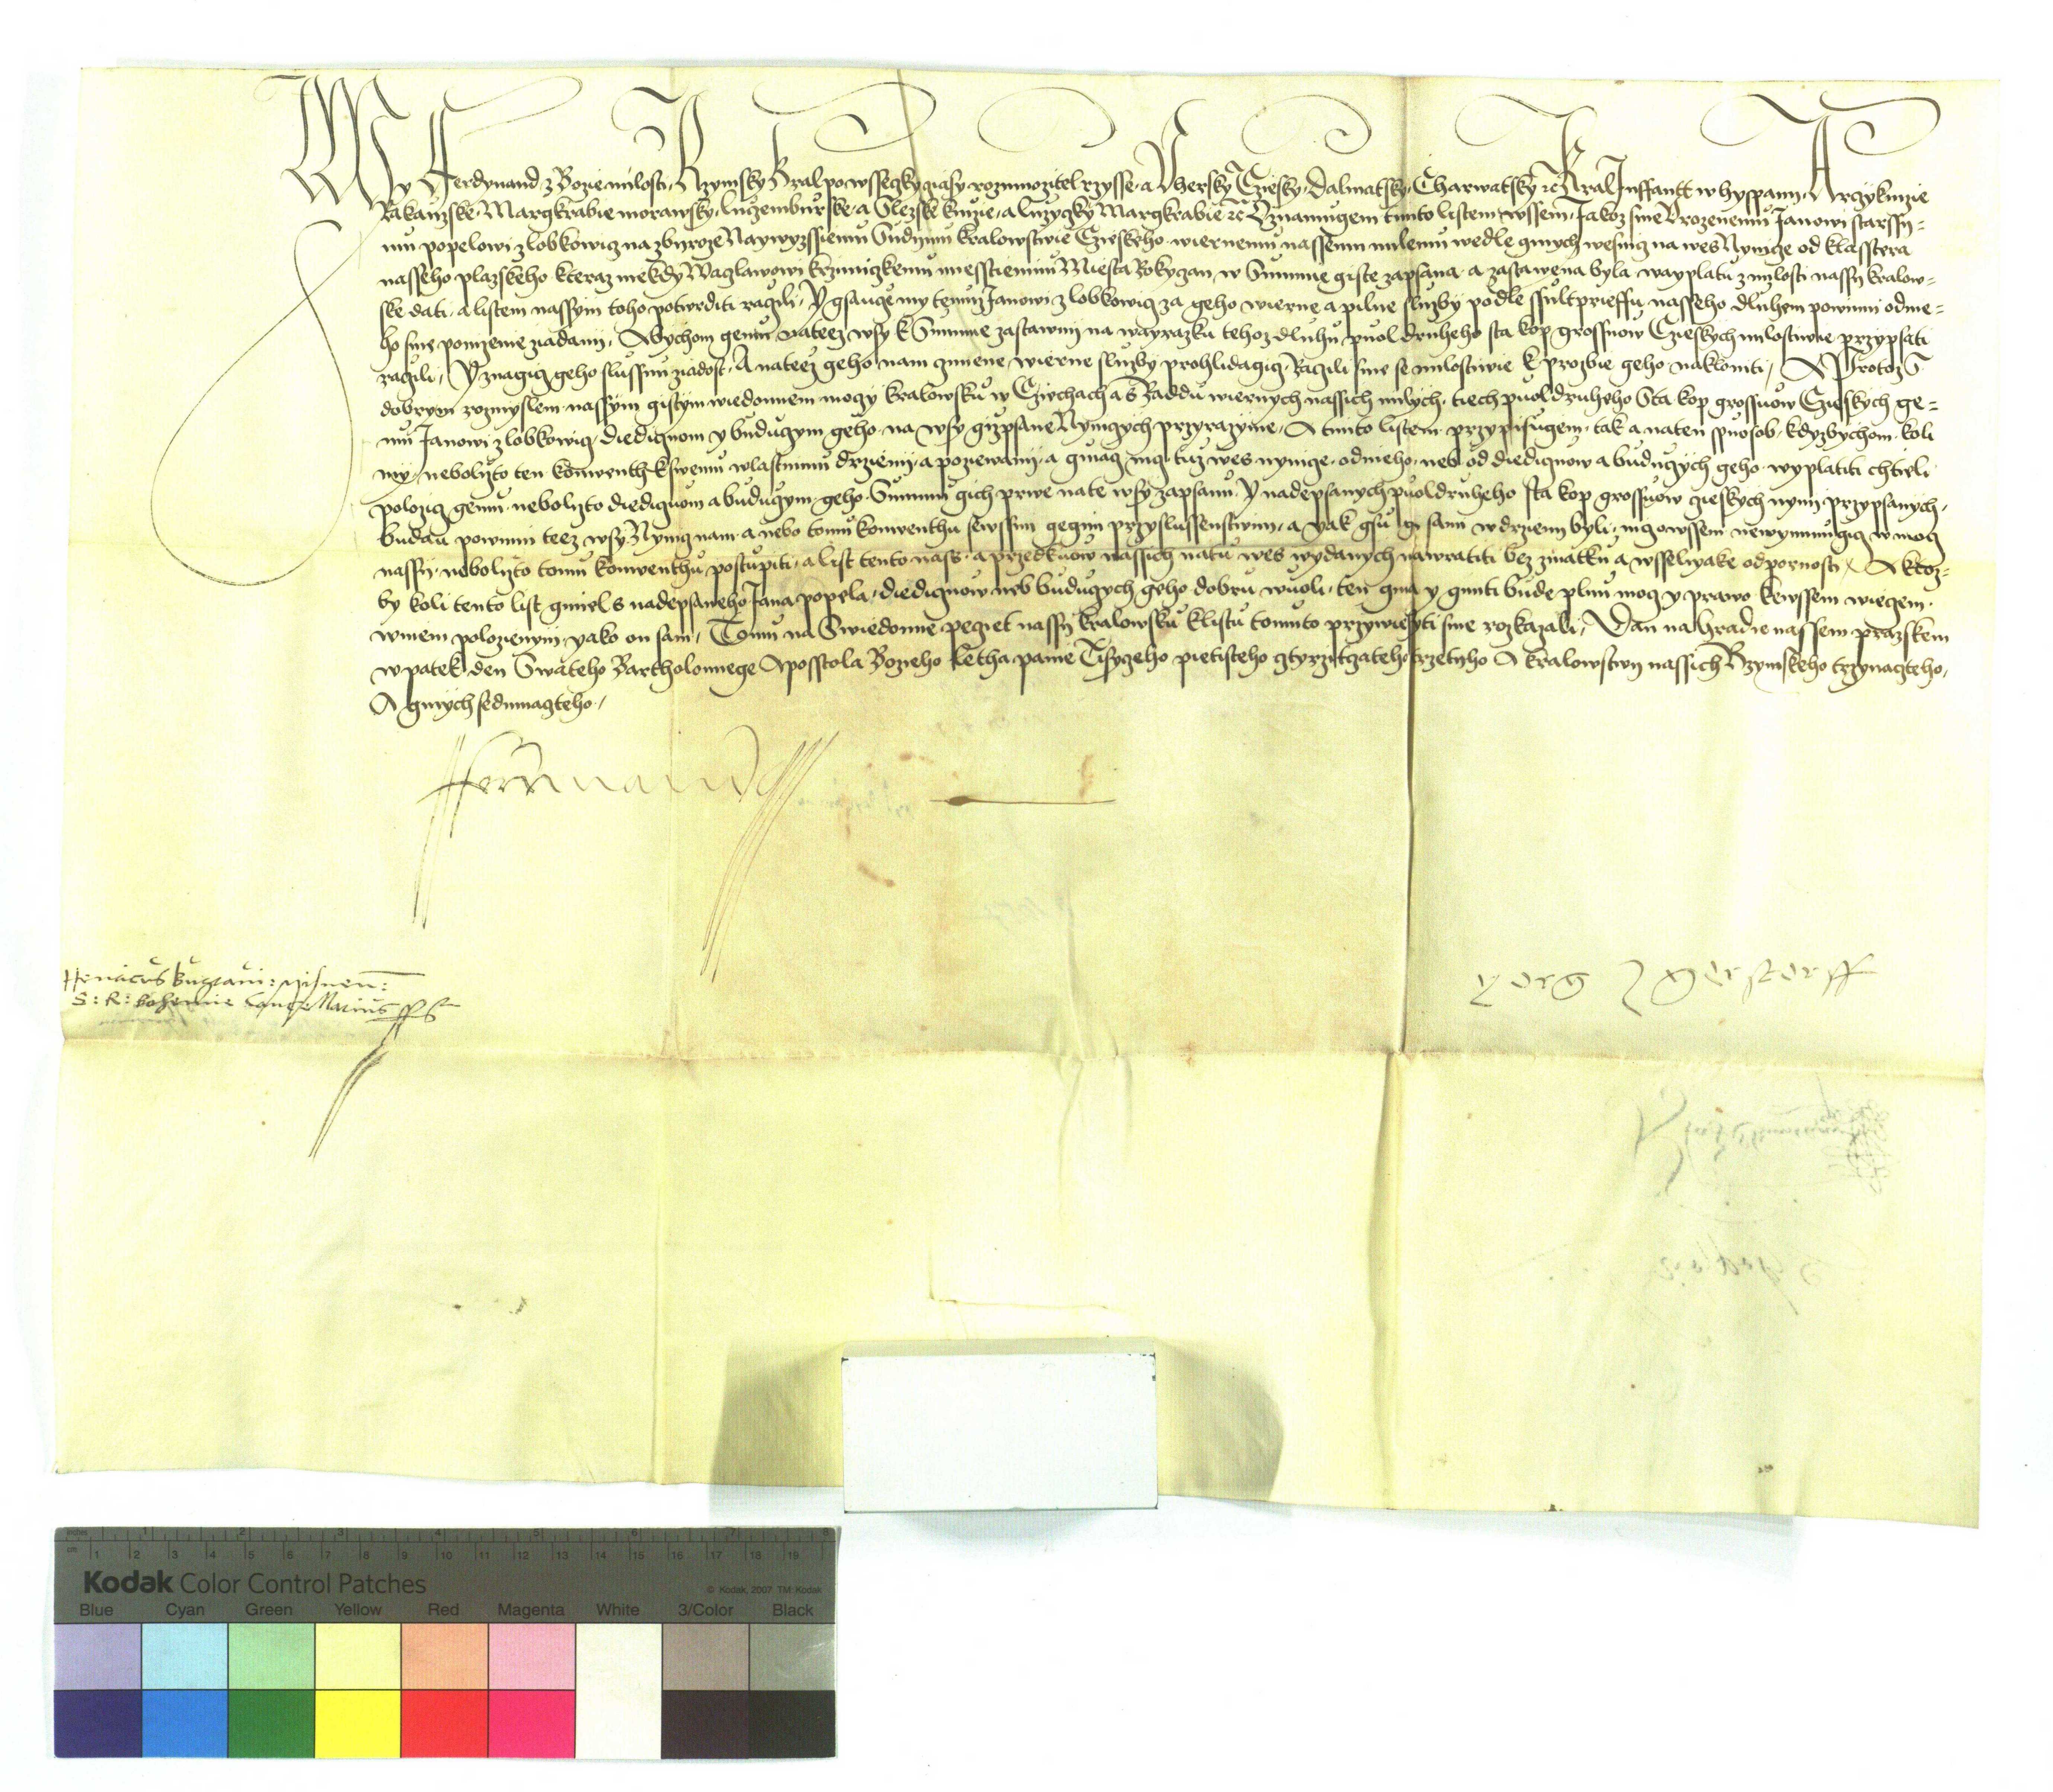 My Ferdynand z Bozie milosti, Rzymsky Kral po wssegky cziasy rozmnozitel rzysse, a Vhersky Cziesky, Dalmatsky, Charwatsky ꝛc Kral Inffantt w hyspanij, Arczyknizie
Rakauzske, Margkrabie morawsky, luczemburske, a Slezske knizie, a luzyczky Margkrabie ꝛc Vznamugem timto listem wssem, Jakoz sme Vrozenemu Janowi starssy=
mu popelowi z lobkowicz na zbyroze Naywyzssiemu Sudymu kralowstwie Czieskeho wiernemu nassemu milemu wedle ginych wesnicz na wes Nynicze od klasstera
nasseho plazskeho kteraz niekdy Waglawowi krzinigkemu miesstieninu Miesta Rokyczan, w Summie giste zapsana a zastawena byla wayplatu z milosti nassy kralow=
ske dati, a listem nassym toho potwrditi raczili, Y gsauce my temuz Janowi z lobkowicz za geho wierne a pilne sluzby podle ssultprieffu nasseho dluhem powinni od nie=
ho sme ponizenie ziadani, Abychom gemu na teez wsy k Summie zastawnij na wayrazku tehoz dluhu puol druheho sta kop grossuow Czieskych milostiwie przypsati
raczili, Y znagicz geho slussnu ziadost, A na teez geho nam czinene wierne sluzby prohlidagicz, Raczili sme se milostiwie k prozbie geho nakloniti, A Protoz S
dobrym rozmyslem nassym gistym wiedomiem moczy kralowsku w Czechach a s Raddu wiernych nassich milych, tiech puol druheho Sta kop grossuow Czieskych ge=
mu Janowi z lobkowicz diediczuom y buduczym geho na wsy gizpsane Nyniczych przyrazyme, A timto listem przypisugem, tak a na ten spuosob, kdyzbychom koli
my, nebolizto ten konwenth k swemu wlastnimu drzieni, a poziewani, a ginacz nicz tuz wes nynicze, od nieho, neb od diediczuow a buduczych geho wyplatiti chtieli
polozicz gemu, nebolizto diediczuom a buduczym geho Summu gich prwe na te wsy zapsanu, Y nadepsanych puoldruheho sta kop grossuow czieskych nyni przypsanych,
budau powinni teez wsy Nynicz nam, a nebo tomu konwenthu sewssim gegim przyslussenstwim, a yak gsu gi sami w drzieni byli, nicz owssem newymniugicz w mocz
nassy, nebolizto tomu konwenthu postupiti, a list tento nass, a przedkuow nassich na tu wes wydanych nawratiti bez zmatku a wsseliyake odpornosti A ktoz=
by koli tento list gmiel s nadepsaneho Jana popela, diediczuow neb buduczych geho dobru wuoli, ten gma y gmiti bude plnu mocz y prawo kewssem wieczem
w niem polozienym, yako on sam, Tomu na Swiedomie peczet nassy kralowsku k listu tomuto przywiesyti sme rozkazali, Dan na hradie nassem prazskem
w patek, den Swateho Bartholomiege Aposstola Bozieho Letha panie Tisyczeho pietisteho cztyrzitczateho trzetyho A kralowstwij nassich Rzymskeho trzynacteho,
A ginych sedmnacteho,
Ferdinand
Henricus burgravi: misnen:
S: R: bohemie Cancellarius
Yorg Z Gerstorff
inches 1 2 3 4 5 6 7 8
cm 1 2 3 4 5 6 7 8 9 10 11 12 13 14 15 16 17 18 19
Kodak Color Control Patches © Kodak, 2007 TM: Kodak
Blue Cyan Green Yellow Red Magenta White 3/Color Black